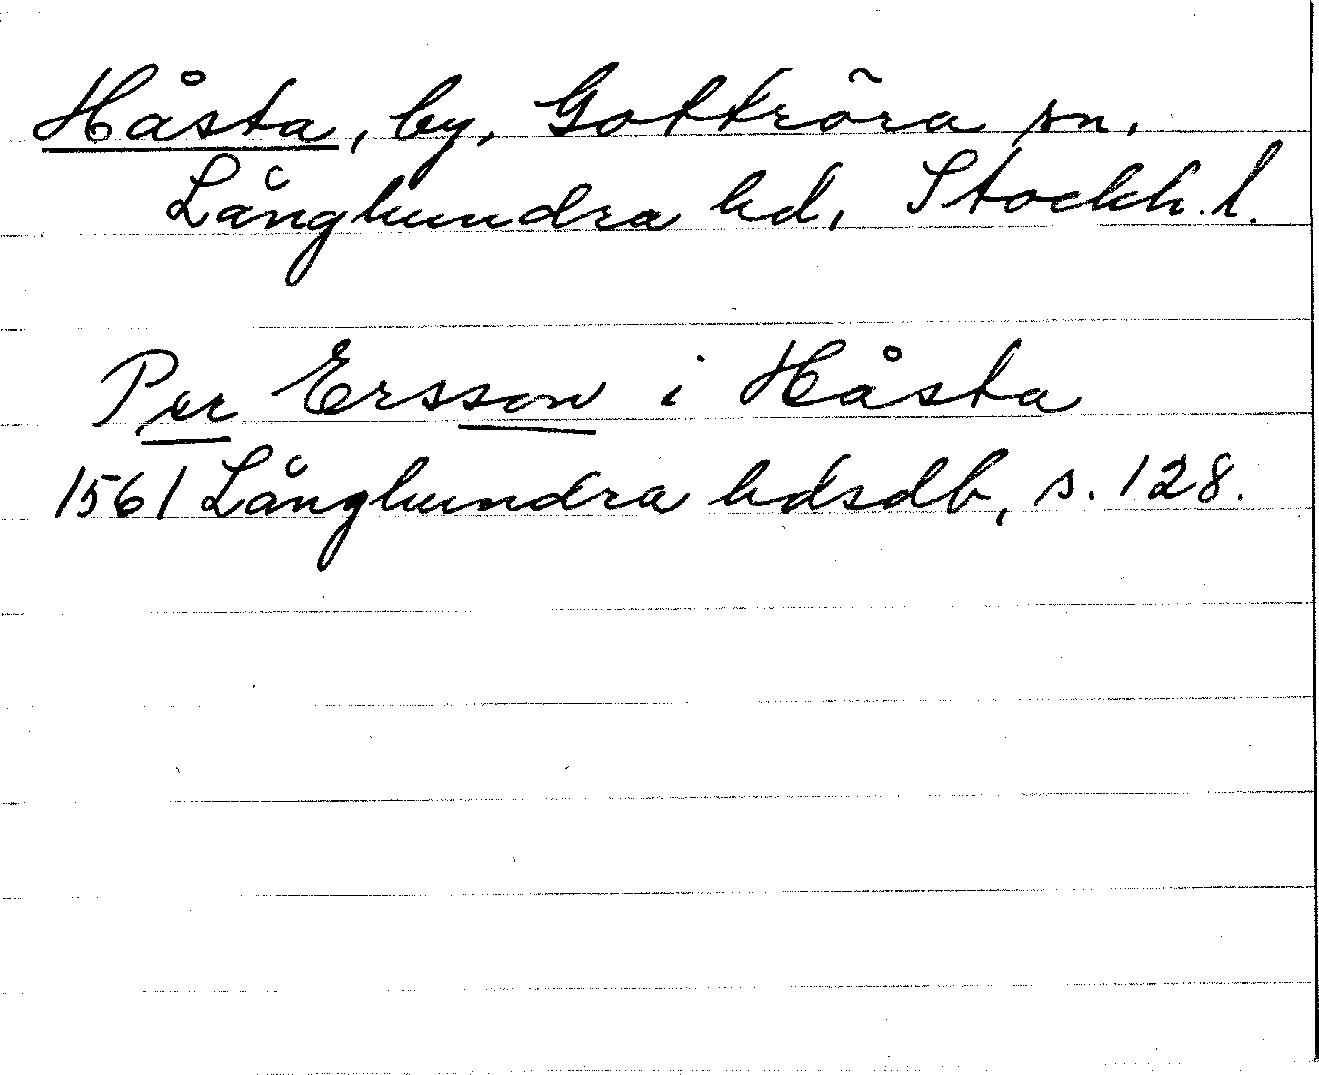 Håsta, by, Gottröra sn.
Långhundra hd, Stockh. l.
Per Ersson i Håsta
1561 Långhundra hdsdb, s. 128.